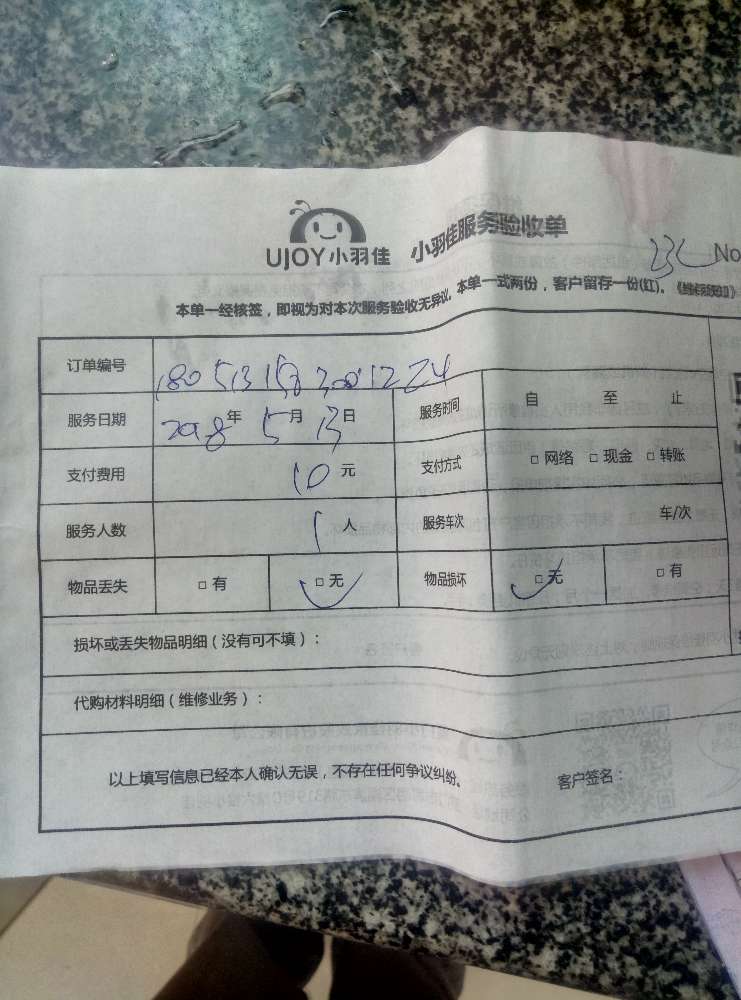 UJOY小羽佳 小羽佳服务验收单
No
本单一经核签,即视为对本次服务验收无异议。本单一式两份,客户留存一份(红)。
订单编号
服务日期 2018年 5月 13日 服务时间 自 至 止
支付费用 10元 支付方式 □ 网络 □ 现金 □ 转账
服务人数 1人 服务车次 车/次
物品丢失 □ 有 □ 无 物品损坏 □ 无 □ 有
损坏或丢失物品明细(没有可不填):
代购材料明细(维修业务):
以上填写信息已经本人确认无误,不存在任何争议纠纷。 客户签名: